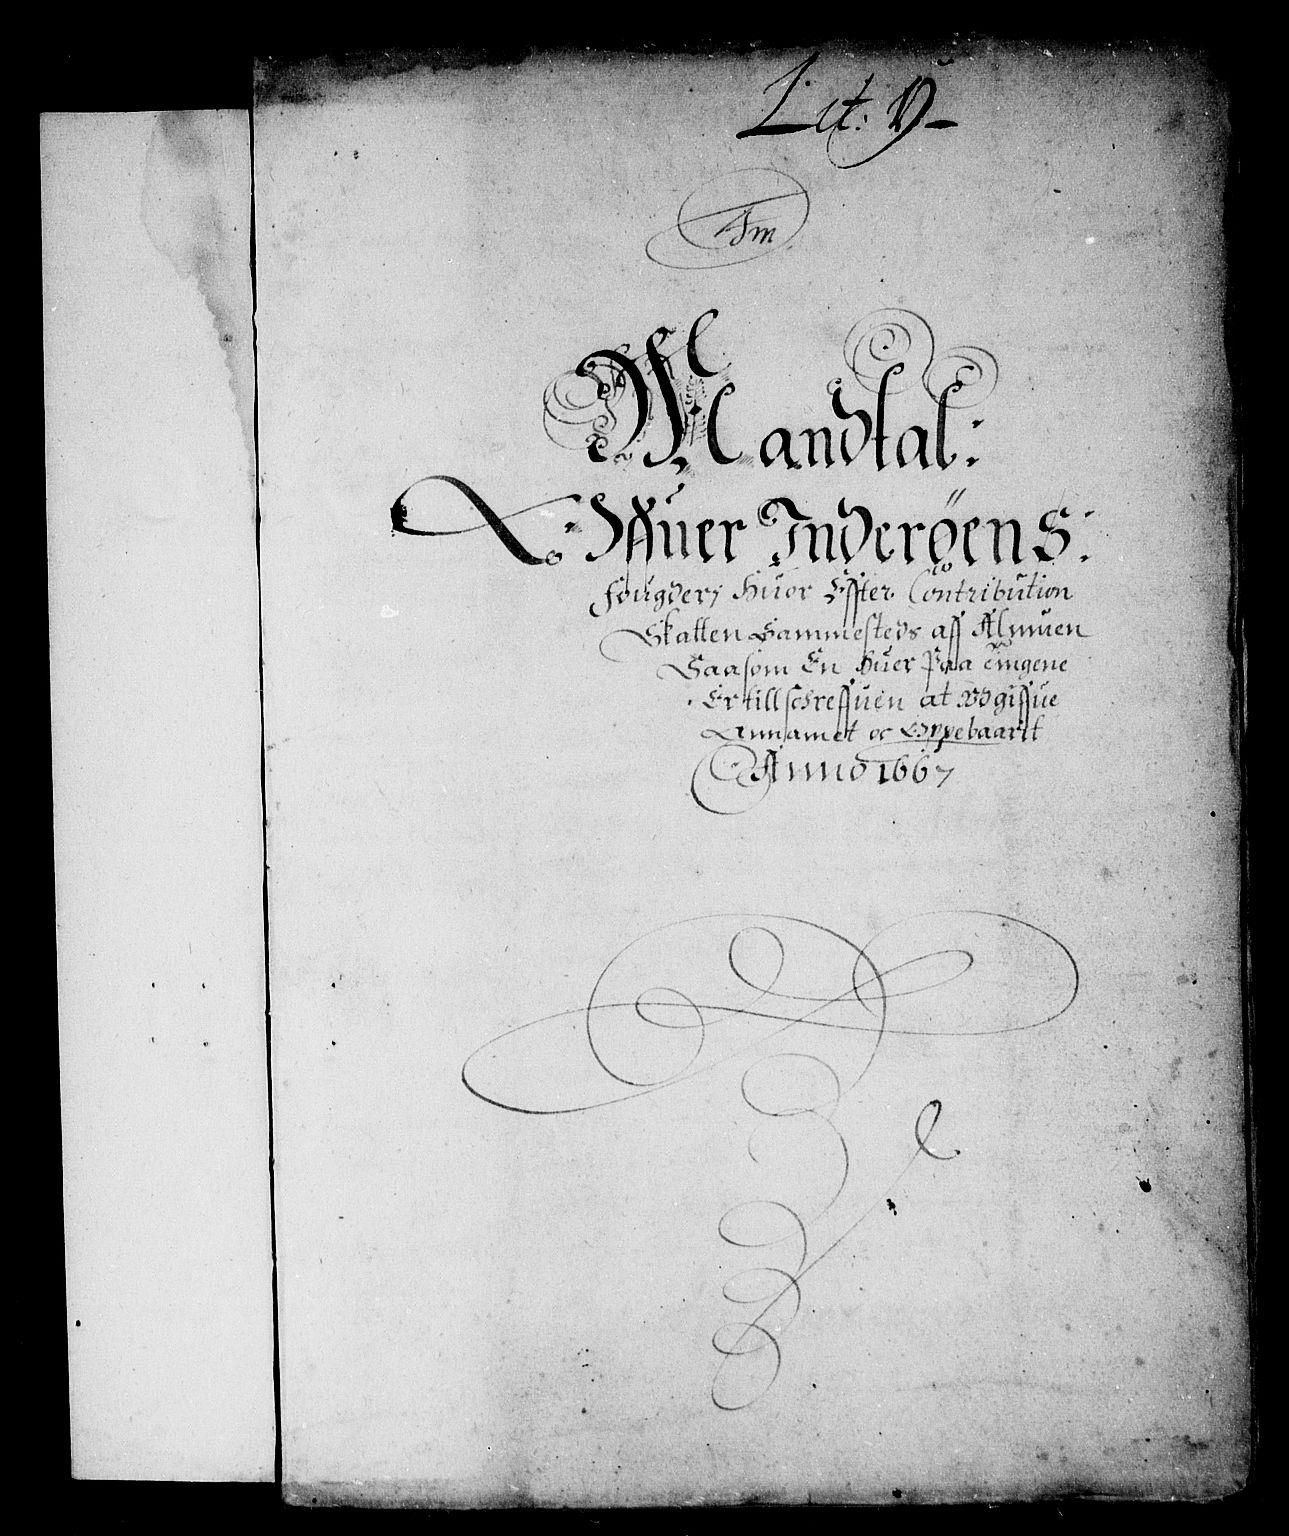 Lit: D
Mandtal:
Offuer Inderøens:
fougderj Huor Effter Contribution
Skatten Sammesteds aff Almuen
Saasom En Huer Paa Tingene
Er tillschreffuen at Vdgiffue
Annamet oc Oppebaarit
Anno 1667